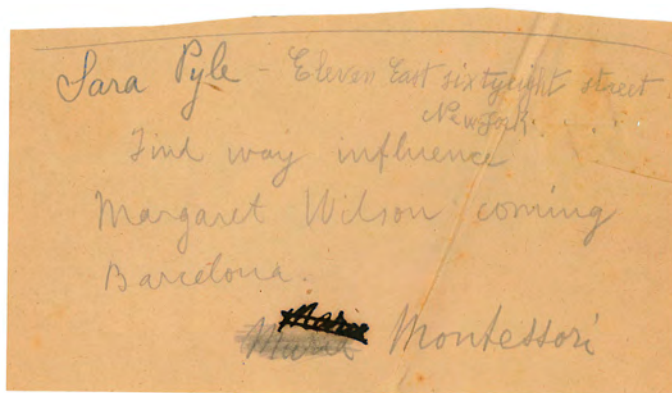 Sara Pyle - Eleven East sixtyeight street
New York. . . .
Find way influence
Margaret Wilson coming
Barcelona.
Montessori